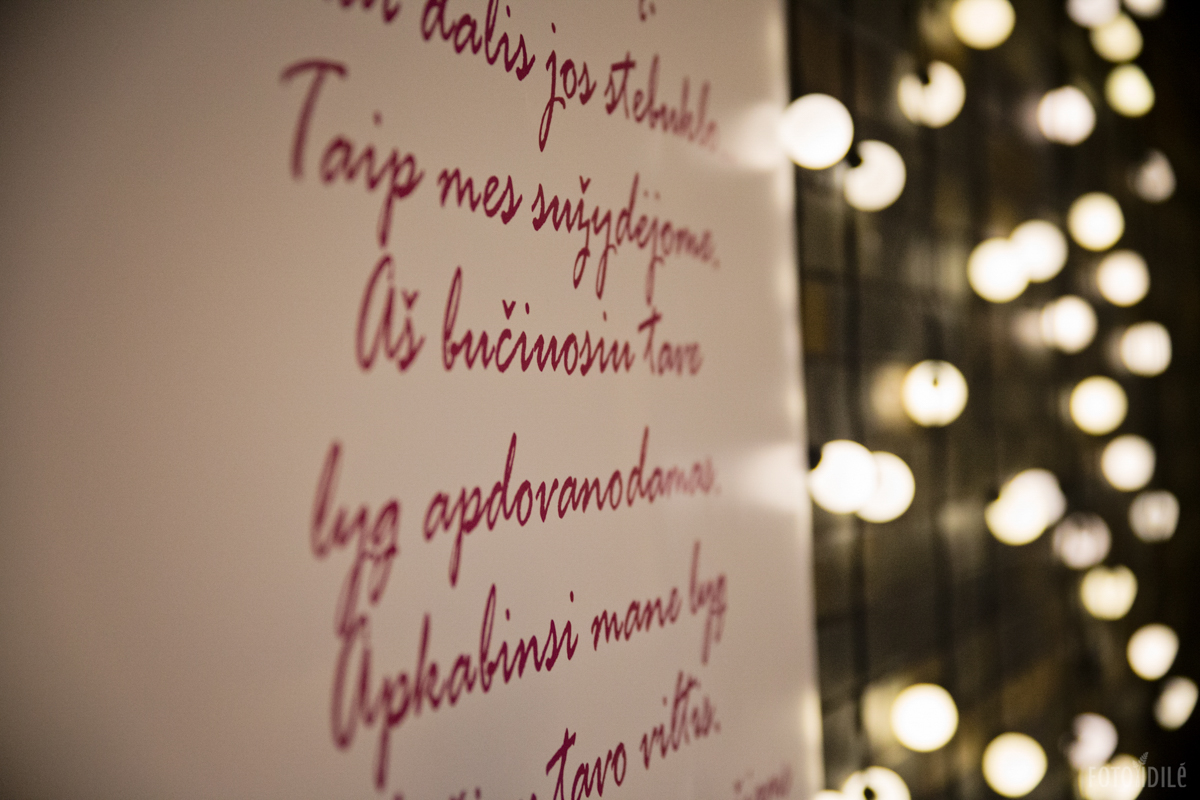 dalis jos stebuklo.
Taip mes sužydėjome.
Aš bučiuosiu tave
lyg apdovanodamas.
Apkabinsi mane lyg
tavo viltis.
FOTOŪDILĖ